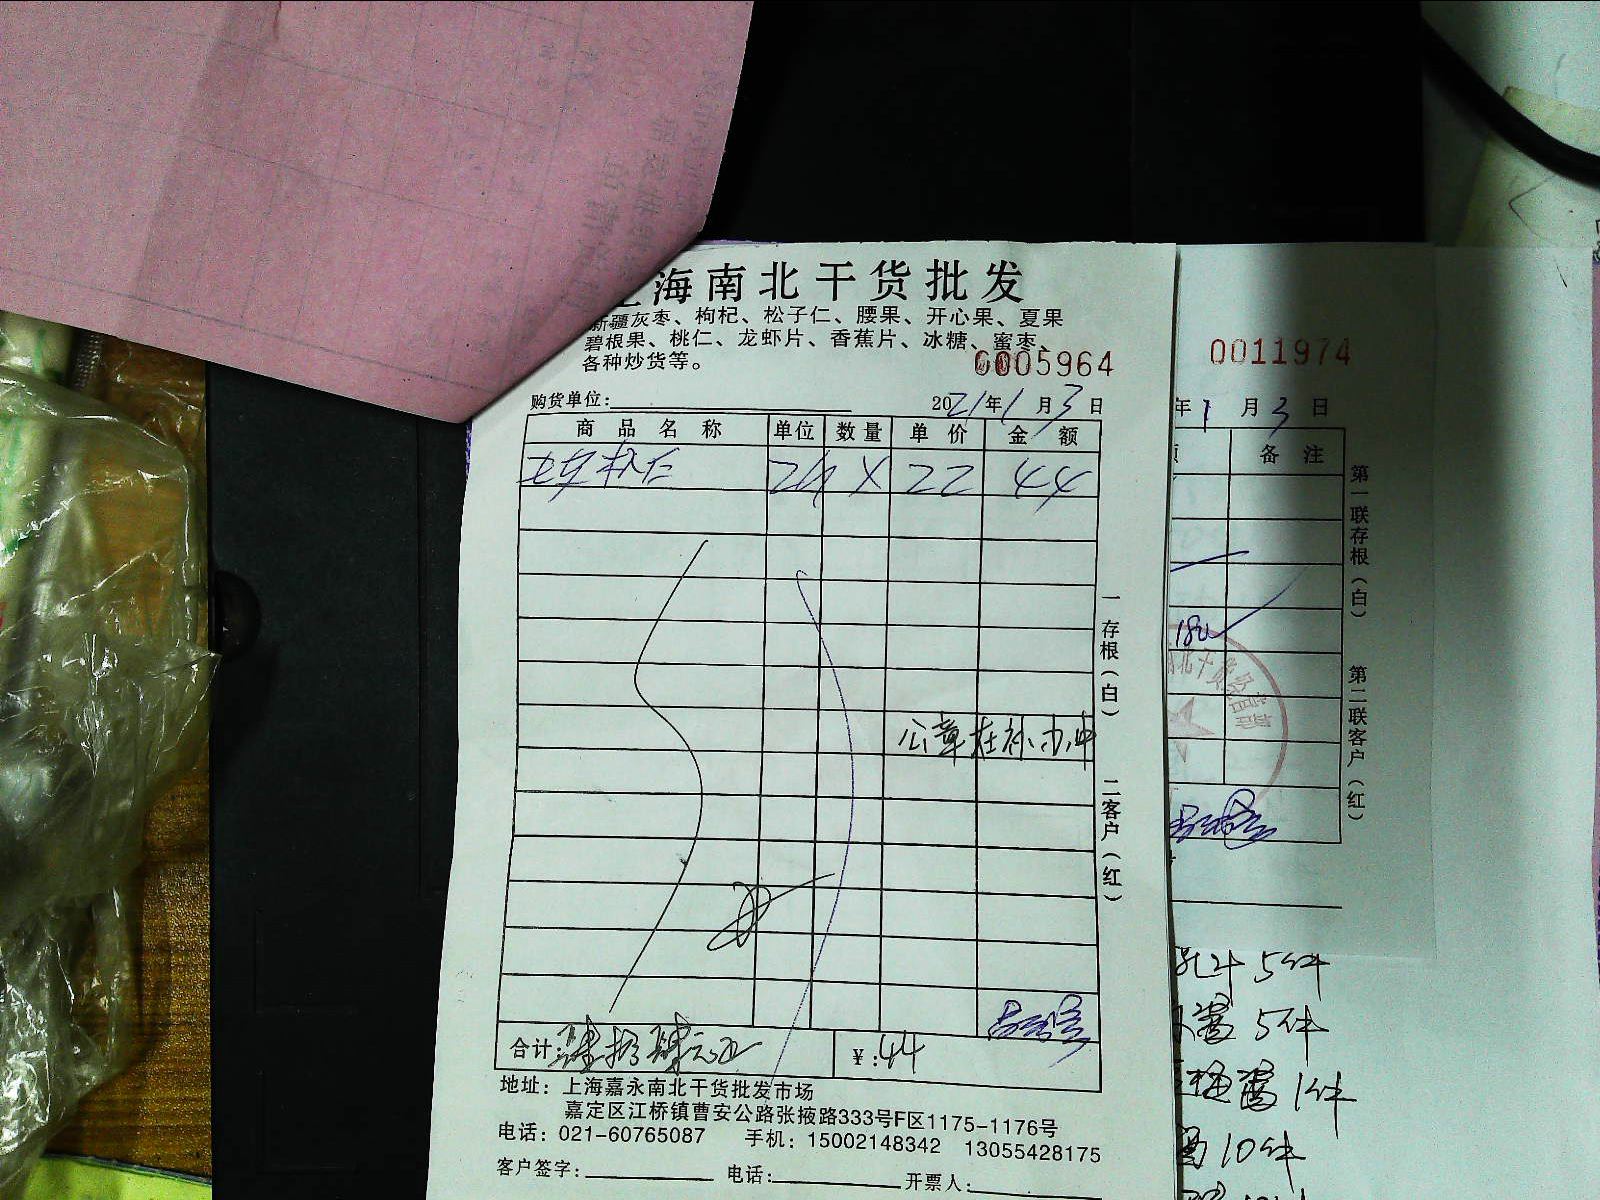 海南北干货批发
新疆灰枣、枸杞、松子仁、腰果、开心果、夏果
碧根果、桃仁、龙虾片、香蕉片、冰糖、蜜枣、
各种炒货等。
0005964
购货单位:
2021年1月3日
商品名称 单位 数量 单价 金额
22 44
公章在补办中
一存根(白) 二客户(红)
合计:肆拾肆元正 ¥:44
地址:上海嘉永南北干货批发市场
嘉定区江桥镇曹安公路张掖路333号F区1175-1176号
电话:021-60765087 手机:15002148342 13055428175
客户签字: 电话: 开票人:
0011974
年1月3日
备注
180
北干货经营部
第一联存根(白) 第二联客户(红)
5件
酱5件
酱1件
10件